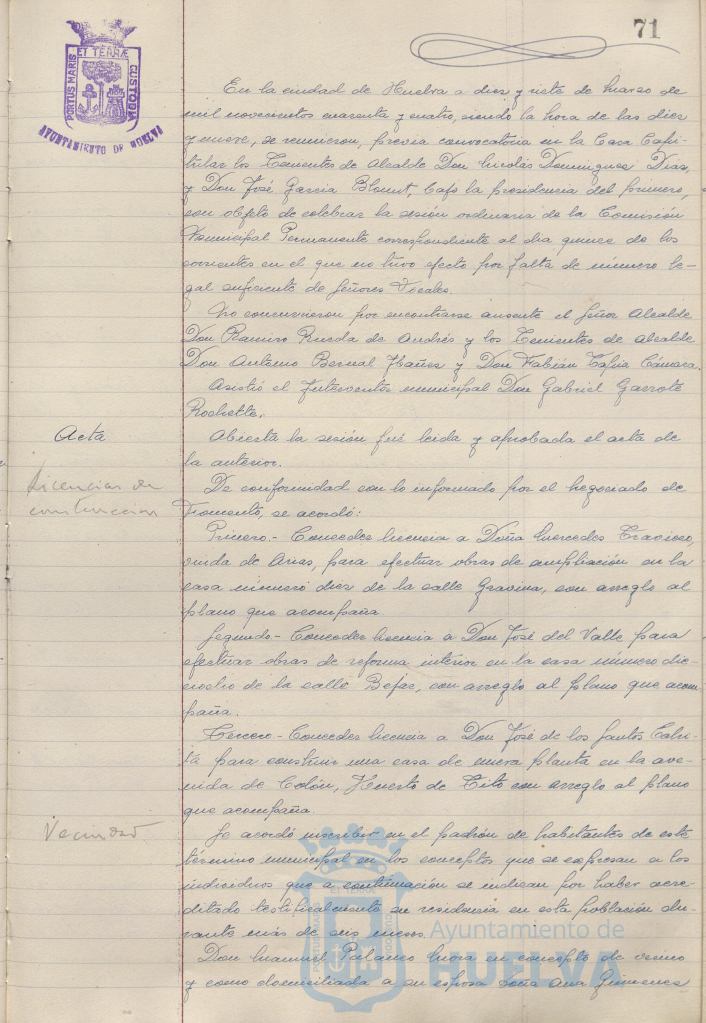 71
PORTUS MARIS
ET TERRÆ
CUSTODIA
AYUNTAMIENTO DE HUELVA
En la ciudad de Huelva a diez y siete de marzo de
mil novecientos cuarenta y cuatro, siendo la hora de las diez
y nueve, se reunieron, previa convocatoria en la Casa Capi-
tular los Tenientes de Alcalde Don Nicolás Dominguez Diaz,
y Don José Garcia Blount, bajo la presidencia del primero,
con objeto de celebrar la sesión ordinaria de la Comisión
Municipal Permanente correspondiente al dia quince de los
corrientes en el que no tuvo efecto por falta de número le-
gal suficiente de Señores Vocales.
No concurrieron por encontrarse ausente el Señor Alcalde
Don Ramiro Rueda de Andrés y los Tenientes de Alcalde
Don Antonio Bernal Ibañez y Don Fabián Tapia Cámara.
Asistió el Interventor municipal Don Gabriel Garrote
Rochette.
Acta
Abierta la sesión fué leida y aprobada el acta de
la anterior.
Licencias de
construccion
De conformidad con lo informado por el Negociado de
Fomento, se acordó:
Primero.- Conceder licencia a Doña Mercedes
viuda de Arias, para efectuar obras de ampliación en la
casa número diez de la calle Gravina, con arreglo al
plano que acompaña.
Segundo.- Conceder licencia a Don José del Valle para
efectuar obras de reforma interior en la casa número die-
ciocho de la calle Bejar, con arreglo al plano que acom-
paña.
Tercero.- Conceder licencia a Don José de los Santos
para construir una casa de nueva planta en la ave-
nida de Colón, Huerto de Tito con arreglo al plano
que acompaña.
Vecindad
Se acordó inscribir en el padrón de habitantes de este
término municipal en los conceptos que se expresan a los
individuos que a continuación se indican por haber acre-
ditado testificalmente su residencia en esta población du-
rante más de seis meses.
Don Manuel Palanco Mora en concepto de vecino
y como domiciliada a su esposa Doña Ana Gimenez
Ayuntamiento de
HUELVA